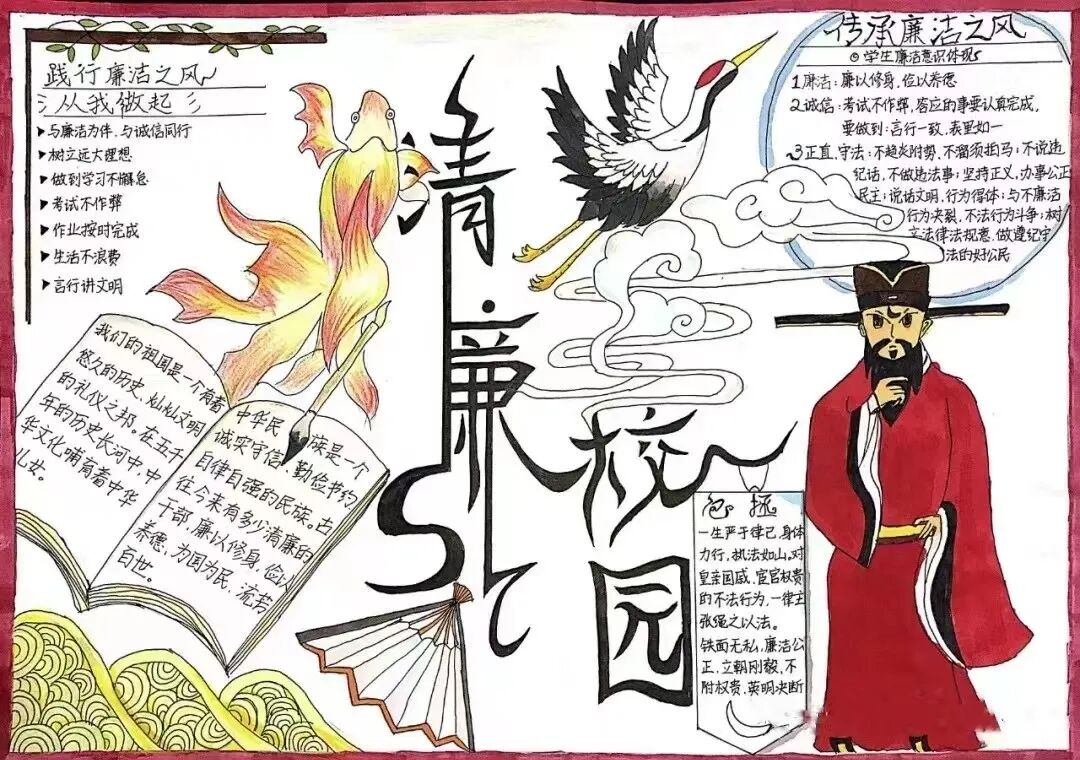 践行廉洁之风
从我做起
与廉洁为伴,与诚信同行
树立远大理想
做到学习不懈怠
考试不作弊
作业按时完成
生活不浪费
言行讲文明
我们的祖国是一个有着
悠久的历史,灿灿文明
的礼仪之邦。在五千
年的历史长河中,中
华文化哺育着中华
儿女。
中华民族是一个
诚实守信 勤俭节约
自律自强的民族。古
往今来有多少清廉的
干部,廉以修身,俭以
养德,为国为民,流芳
百世。
清廉校园
传承廉洁之风
学生廉洁意识体现
1廉洁:廉以修身,俭以养德
2诚信:考试不作弊,答应的事要认真完成,
要做到:言行一致,表里如一
3正直,守法:不趋炎附势,不溜须拍马;不说违
纪话,不做违法事;坚持正义,办事公正
民主;说话文明,行为得体;与不廉洁
行为决裂,不法行为斗争;树
立法律法规意,做遵纪守
法的好公民
包拯
一生严于律己,身体
力行,执法如山。对
皇亲国戚,宦官权贵
的不法行为,一律主
张绳之以法。
铁面无私,廉洁公
正,立朝刚毅,不
附权贵,英明决断